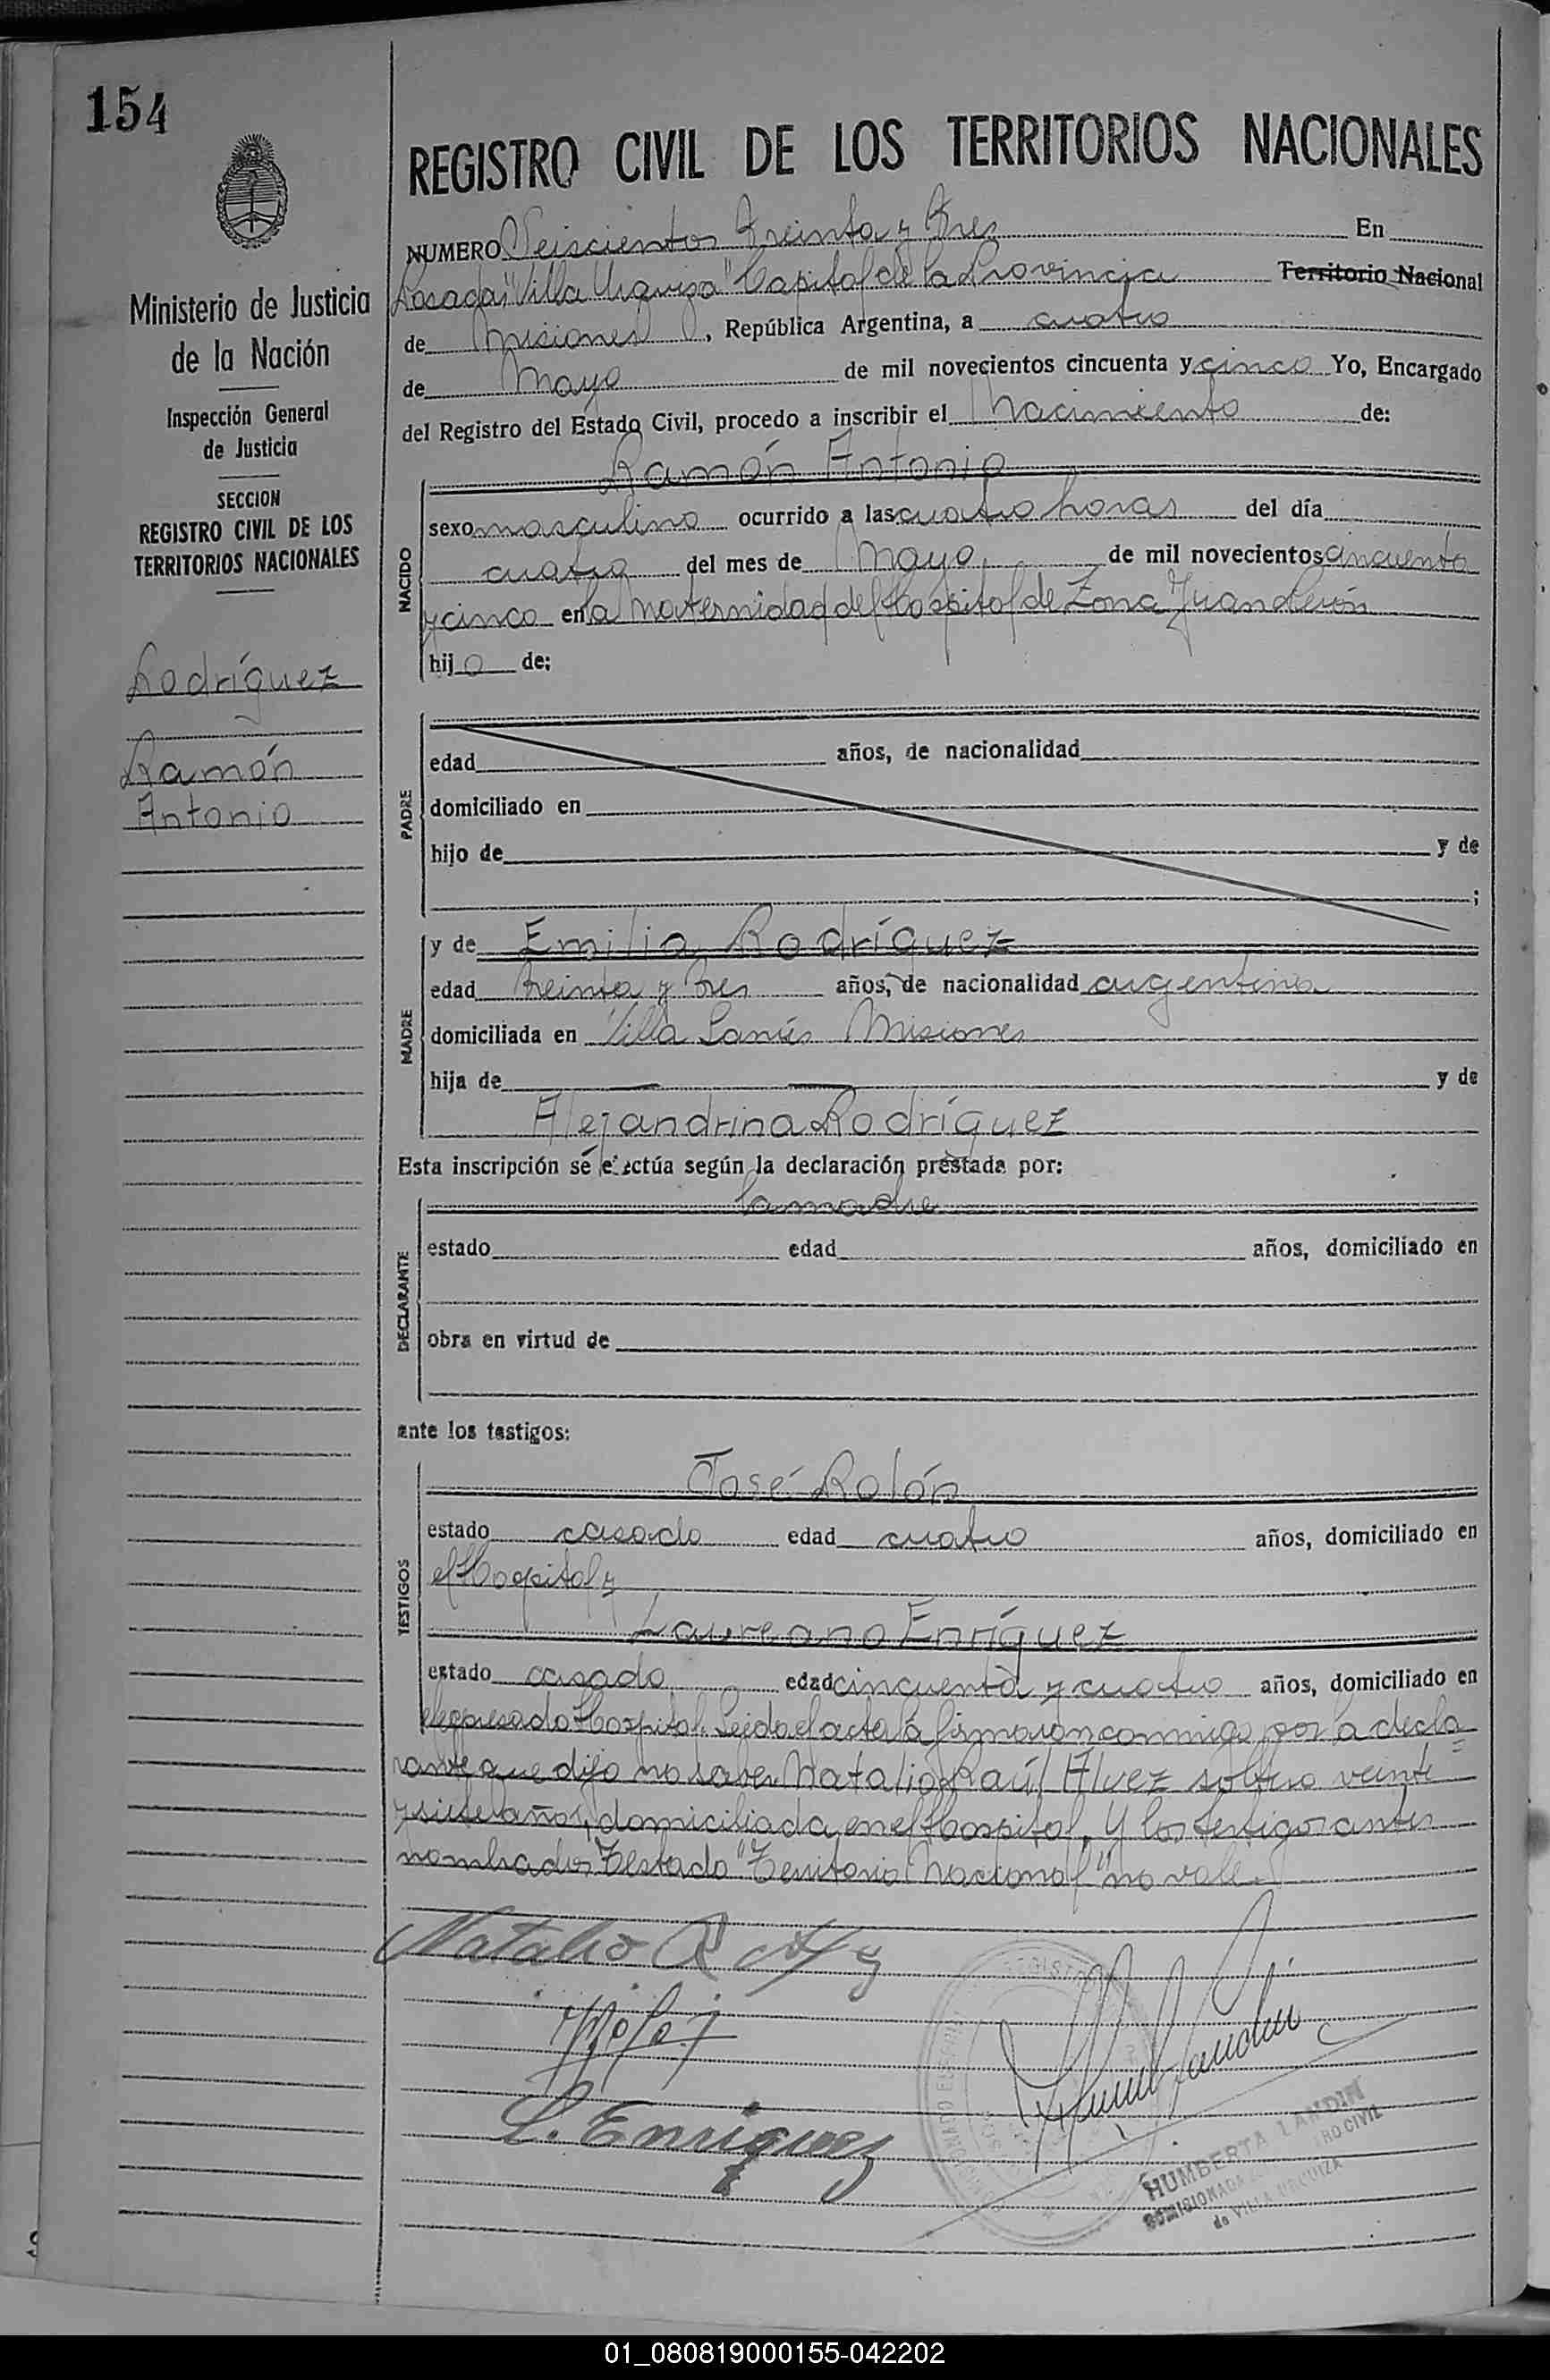 154
REGISTRO CIVIL DE LOS TERRITORIOS NACIONALES
Ministerio de Justicia
de la Nación
Inspección General
de Justicia
SECCION
REGISTRO CIVIL DE LOS
TERRITORIOS NACIONALES
Rodríguez
Ramón
Antonio
NUMERO Seiscientos Treinta y Tres En
Posadas "Villa Urquiza" Capital de la Provincia Territorio Nacional
de Misiones, República Argentina, a cuatro
de Mayo de mil novecientos cincuenta y cinco Yo, Encargado
del Registro del Estado Civil, procedo a inscribir el Nacimiento de:
NACIDO
Ramón Antonio
sexo masculino ocurrido a las cuatro horas del día
cuatro del mes de Mayo de mil novecientos cincuenta
y cinco en la Maternidad del Hospital de Zona Juan Perón
hijo de:
PADRE
edad años, de nacionalidad
domiciliado en
hijo de y de
;
MADRE
y de Emilia Rodríguez
edad Treinta y Tres años, de nacionalidad argentina
domiciliada en Villa Lanús Misiones
hija de — — y de
Alejandrina Rodríguez
Esta inscripción se efectúa según la declaración prestada por:
DECLARANTE
la madre
estado edad años, domiciliado en
obra en virtud de
ante los testigos:
TESTIGOS
José Rolón
estado casado edad cuatro años, domiciliado en
el Hospital y
Laureano Enríquez
estado casado edad cincuenta y cuatro años, domiciliado en
el expresado Hospital. Leida el acta la firmaron conmigo por la decla
rante que dijo no saber Natalio Raúl Alvez soltero veinte
y siete años, domiciliada en el Hospital, y los testigos antes
nombrados Testado "Territorio Nacional" no vale.
Natalio R
L. Enriquez
HUMBERTA LANDIN
COMISIONADA RO CIVIL
de VILLA URQUIZA
01_080819000155-042202